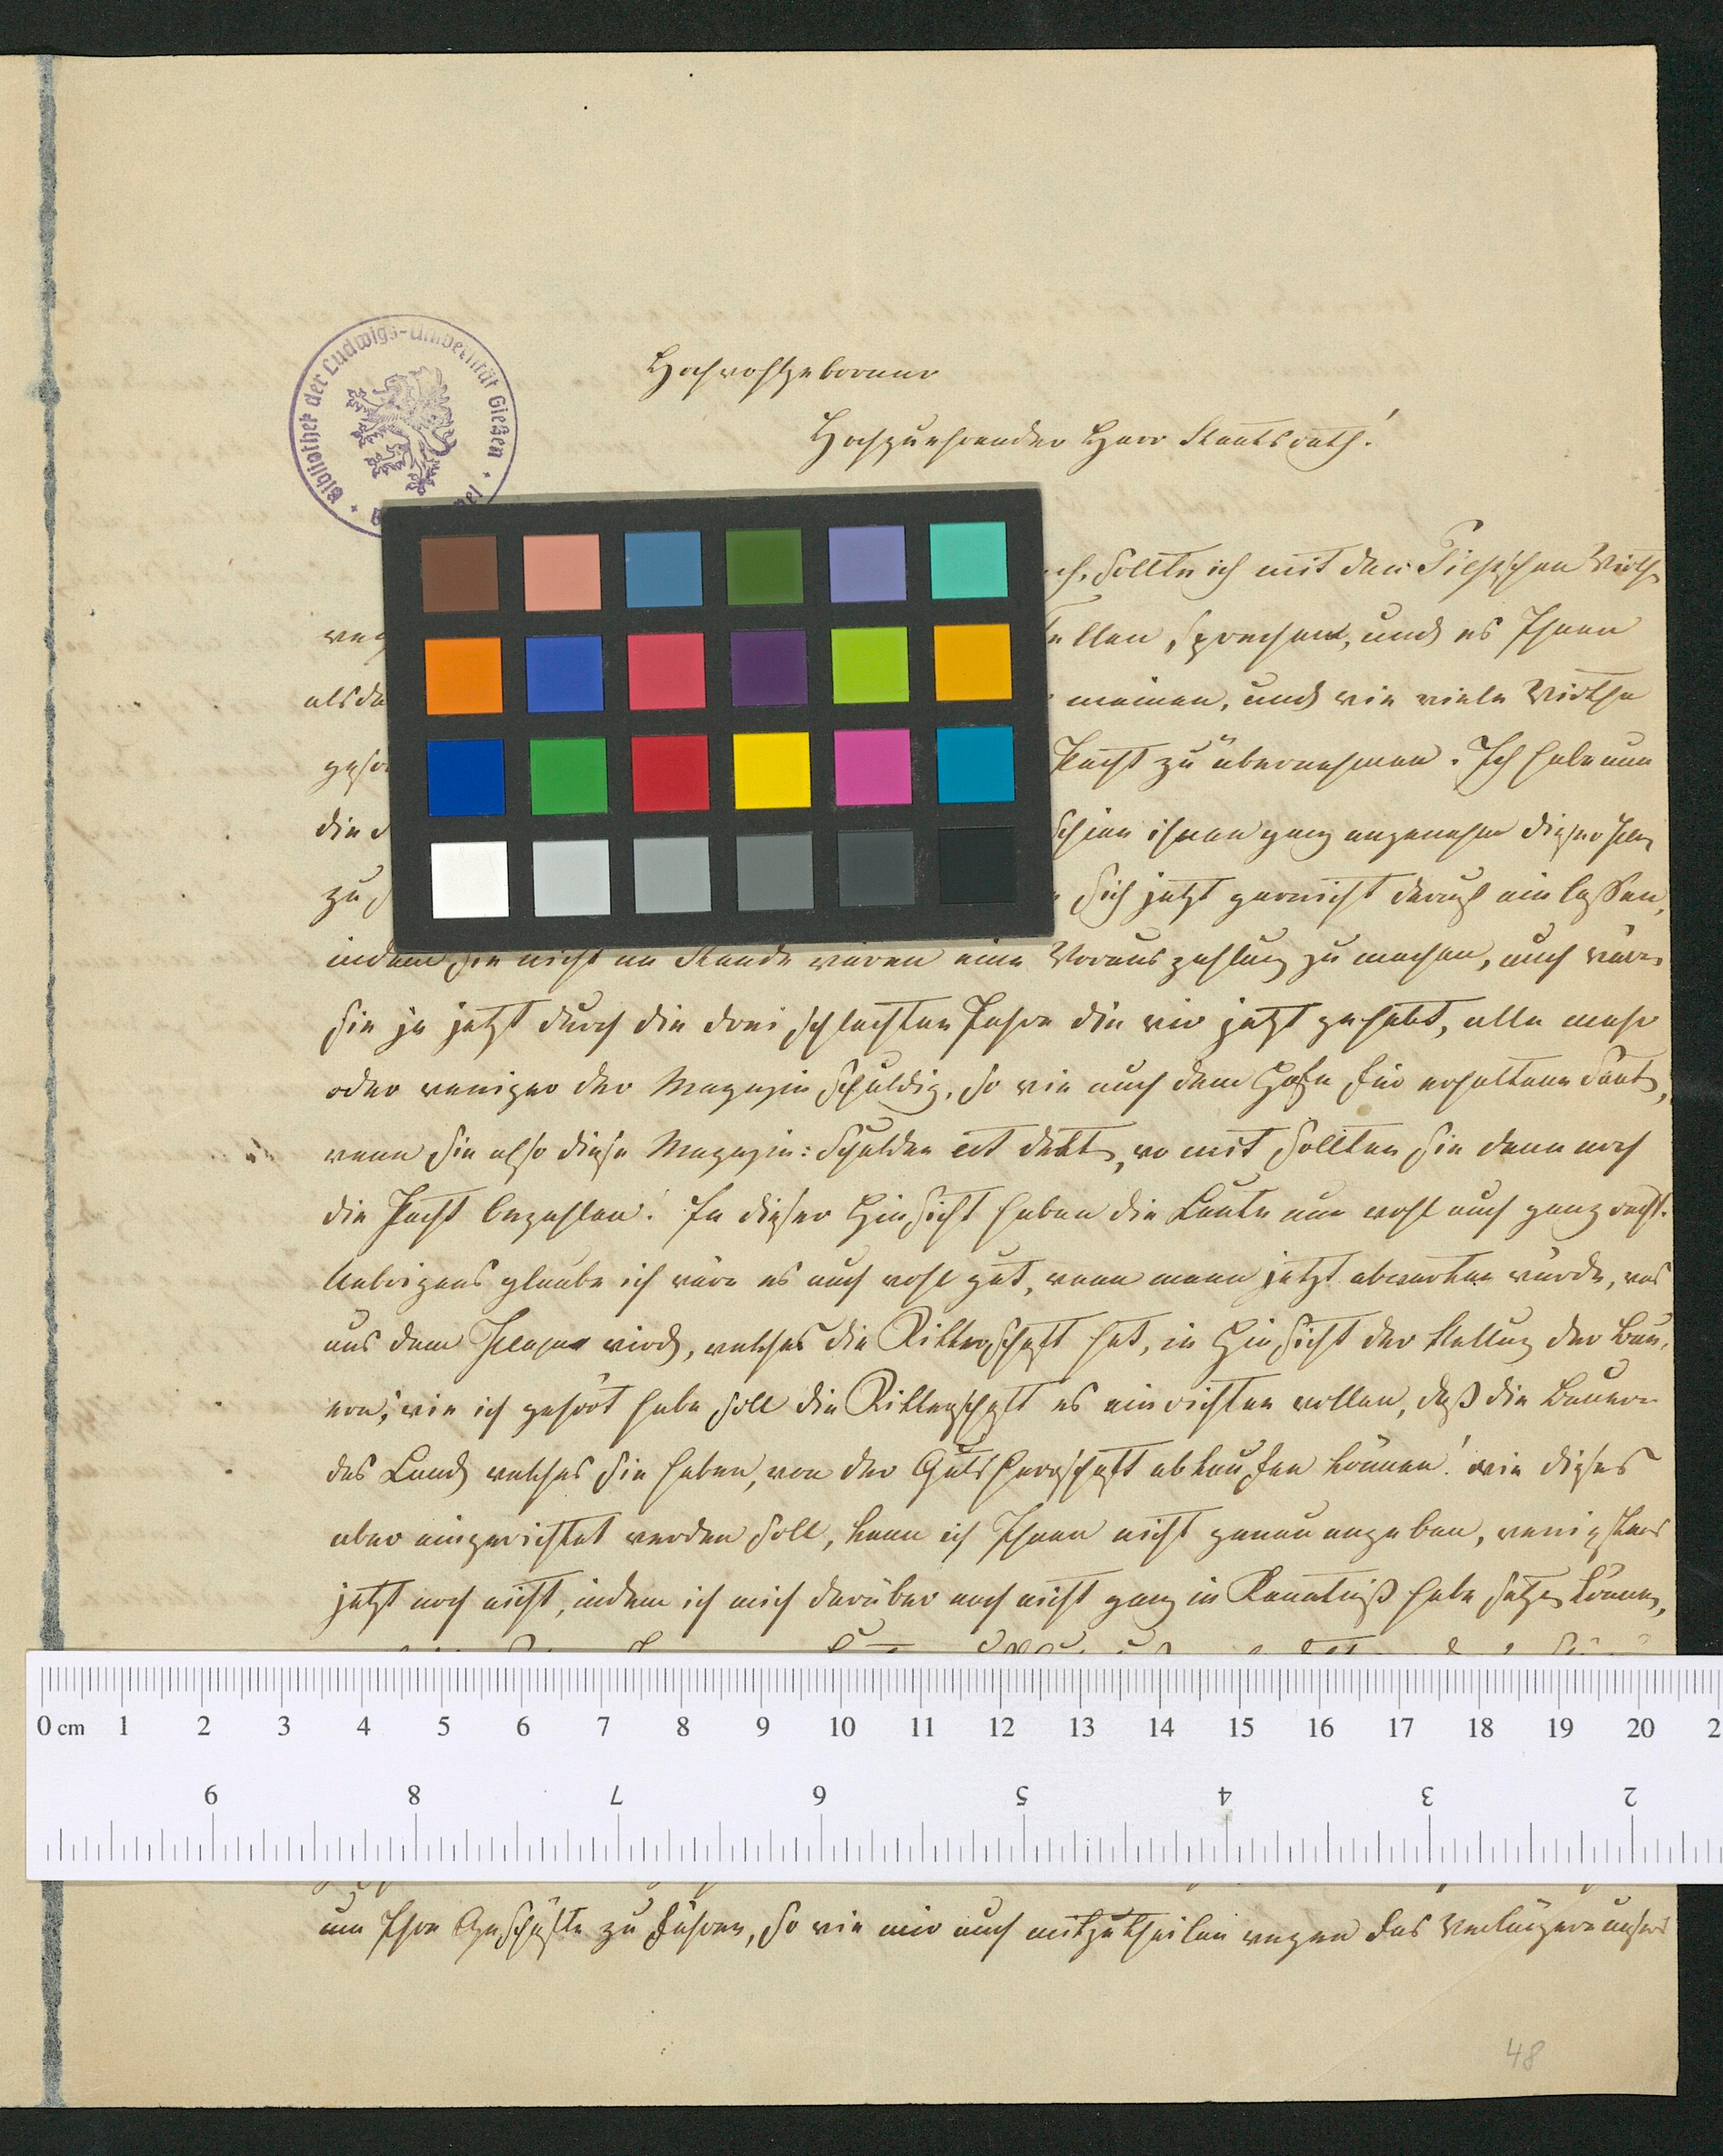 Bibliothek der Ludwigs-Universität Gießen
Hochwohlgeborner
Hochzuehrender Herr Staatsrath!
sollte ich mit den Wirth
sprechen, und es Ihnen
alsda
meinen, und wie viele Wirthe
Pacht zu übernehmen. Ich habe nun
die
schien ihnen ganz angenehm dieser Plan
zu
sich jetzt garnicht darauf einlassen,
indem sie nicht im Stande wären eine Vorauszahlung zu machen, auch wären
Sie ja jetzt durch die drei schlechten Jahre die wir jetzt gehabt, alle mehr
oder weniger der Magazin schuldig, so wie auch dem Hofe für erhaltene Saat,
wenn Sie also diese Magazin: Schulden womit sollten Sie dann noch
die Pacht bezahlen! In dieser Hinsicht haben die Leute nun wohl auch ganz recht.
Uebrigens glaube ich wäre es auch wohl gut, wenn mann jetzt abwarten würde, was
aus dem wird, welches die Ritterschaft hat, in Hinsicht der Stellung der Bau,
ern; wie ich gehört habe soll die Ritterschaft es einrichten wollen, daß die Bauern
das Land welches Sie haben, von der Gutsherrschaft abkaufen können! wie dieses
aber eingerichtet werden soll, kann ich Ihnen nicht genau angeben, wenigstens
jetzt noch nicht, indem ich mich darüber noch nicht ganz in Kenntniß habe setzen können,
0 cm 1 2 3 4 5 6 7 8 9 10 11 12 13 14 15 16 17 18 19 20 2
9 8 7 6 5 4 3 2
um Ihre Geschäfte zu führen, so wie mir auch mitzutheilen wegen das Verlängern unsers
48